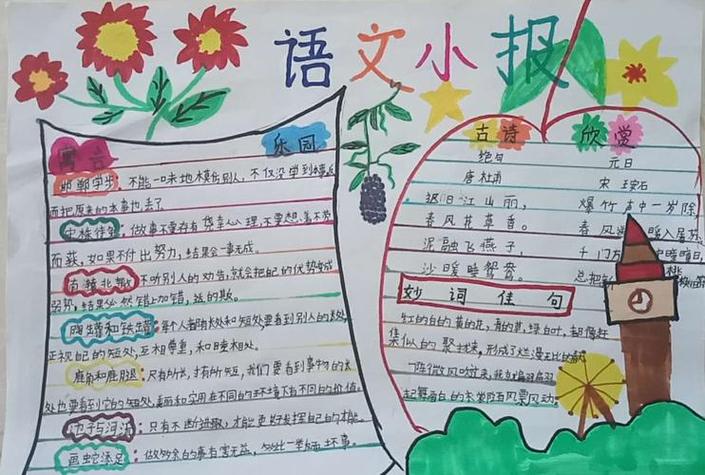 语文小报
寓言 乐园
邯郸学步：不能一味地模仿别人，不仅没学到本事，
而把原来的本事也丢了
守株待兔：做故事不要存有侥幸心理，不要想着不劳
而获，如果不付出努力，结果会一事无成。
南辕北辙：不听别人的劝告，就会把自己的优势
劣势，结果必然错上加错，
陶罐和铁罐：每个人都有长处和短处，要看到别人的长处
正视自己的短处，互相尊重，和睦相处。
鹿角和鹿腿：尺有所长，寸有所短，我们要看到事物的长
处也要看到它的短处，美丽和实用在不同的环境下有不同的价值。
池子与河流：只有不断进取，才能更好发挥自己的才能。
画蛇添足：做多余的事有害无益，
古诗 欣赏
绝句
唐 杜甫
迟日江山丽，
春风花草香。
泥融飞燕子，
沙暖睡鸳鸯。
元日
宋 王安石
爆竹声中一岁除
春风 暖入屠苏
千门万 日
总把新 桃
妙词佳句
红的白的黄的花，青的草，绿的叶，都像赶
集似的聚拢来，形成了烂漫无比的
一阵微风吹过来，我就翩翩
起舞，雪白的衣裳随风飘动。